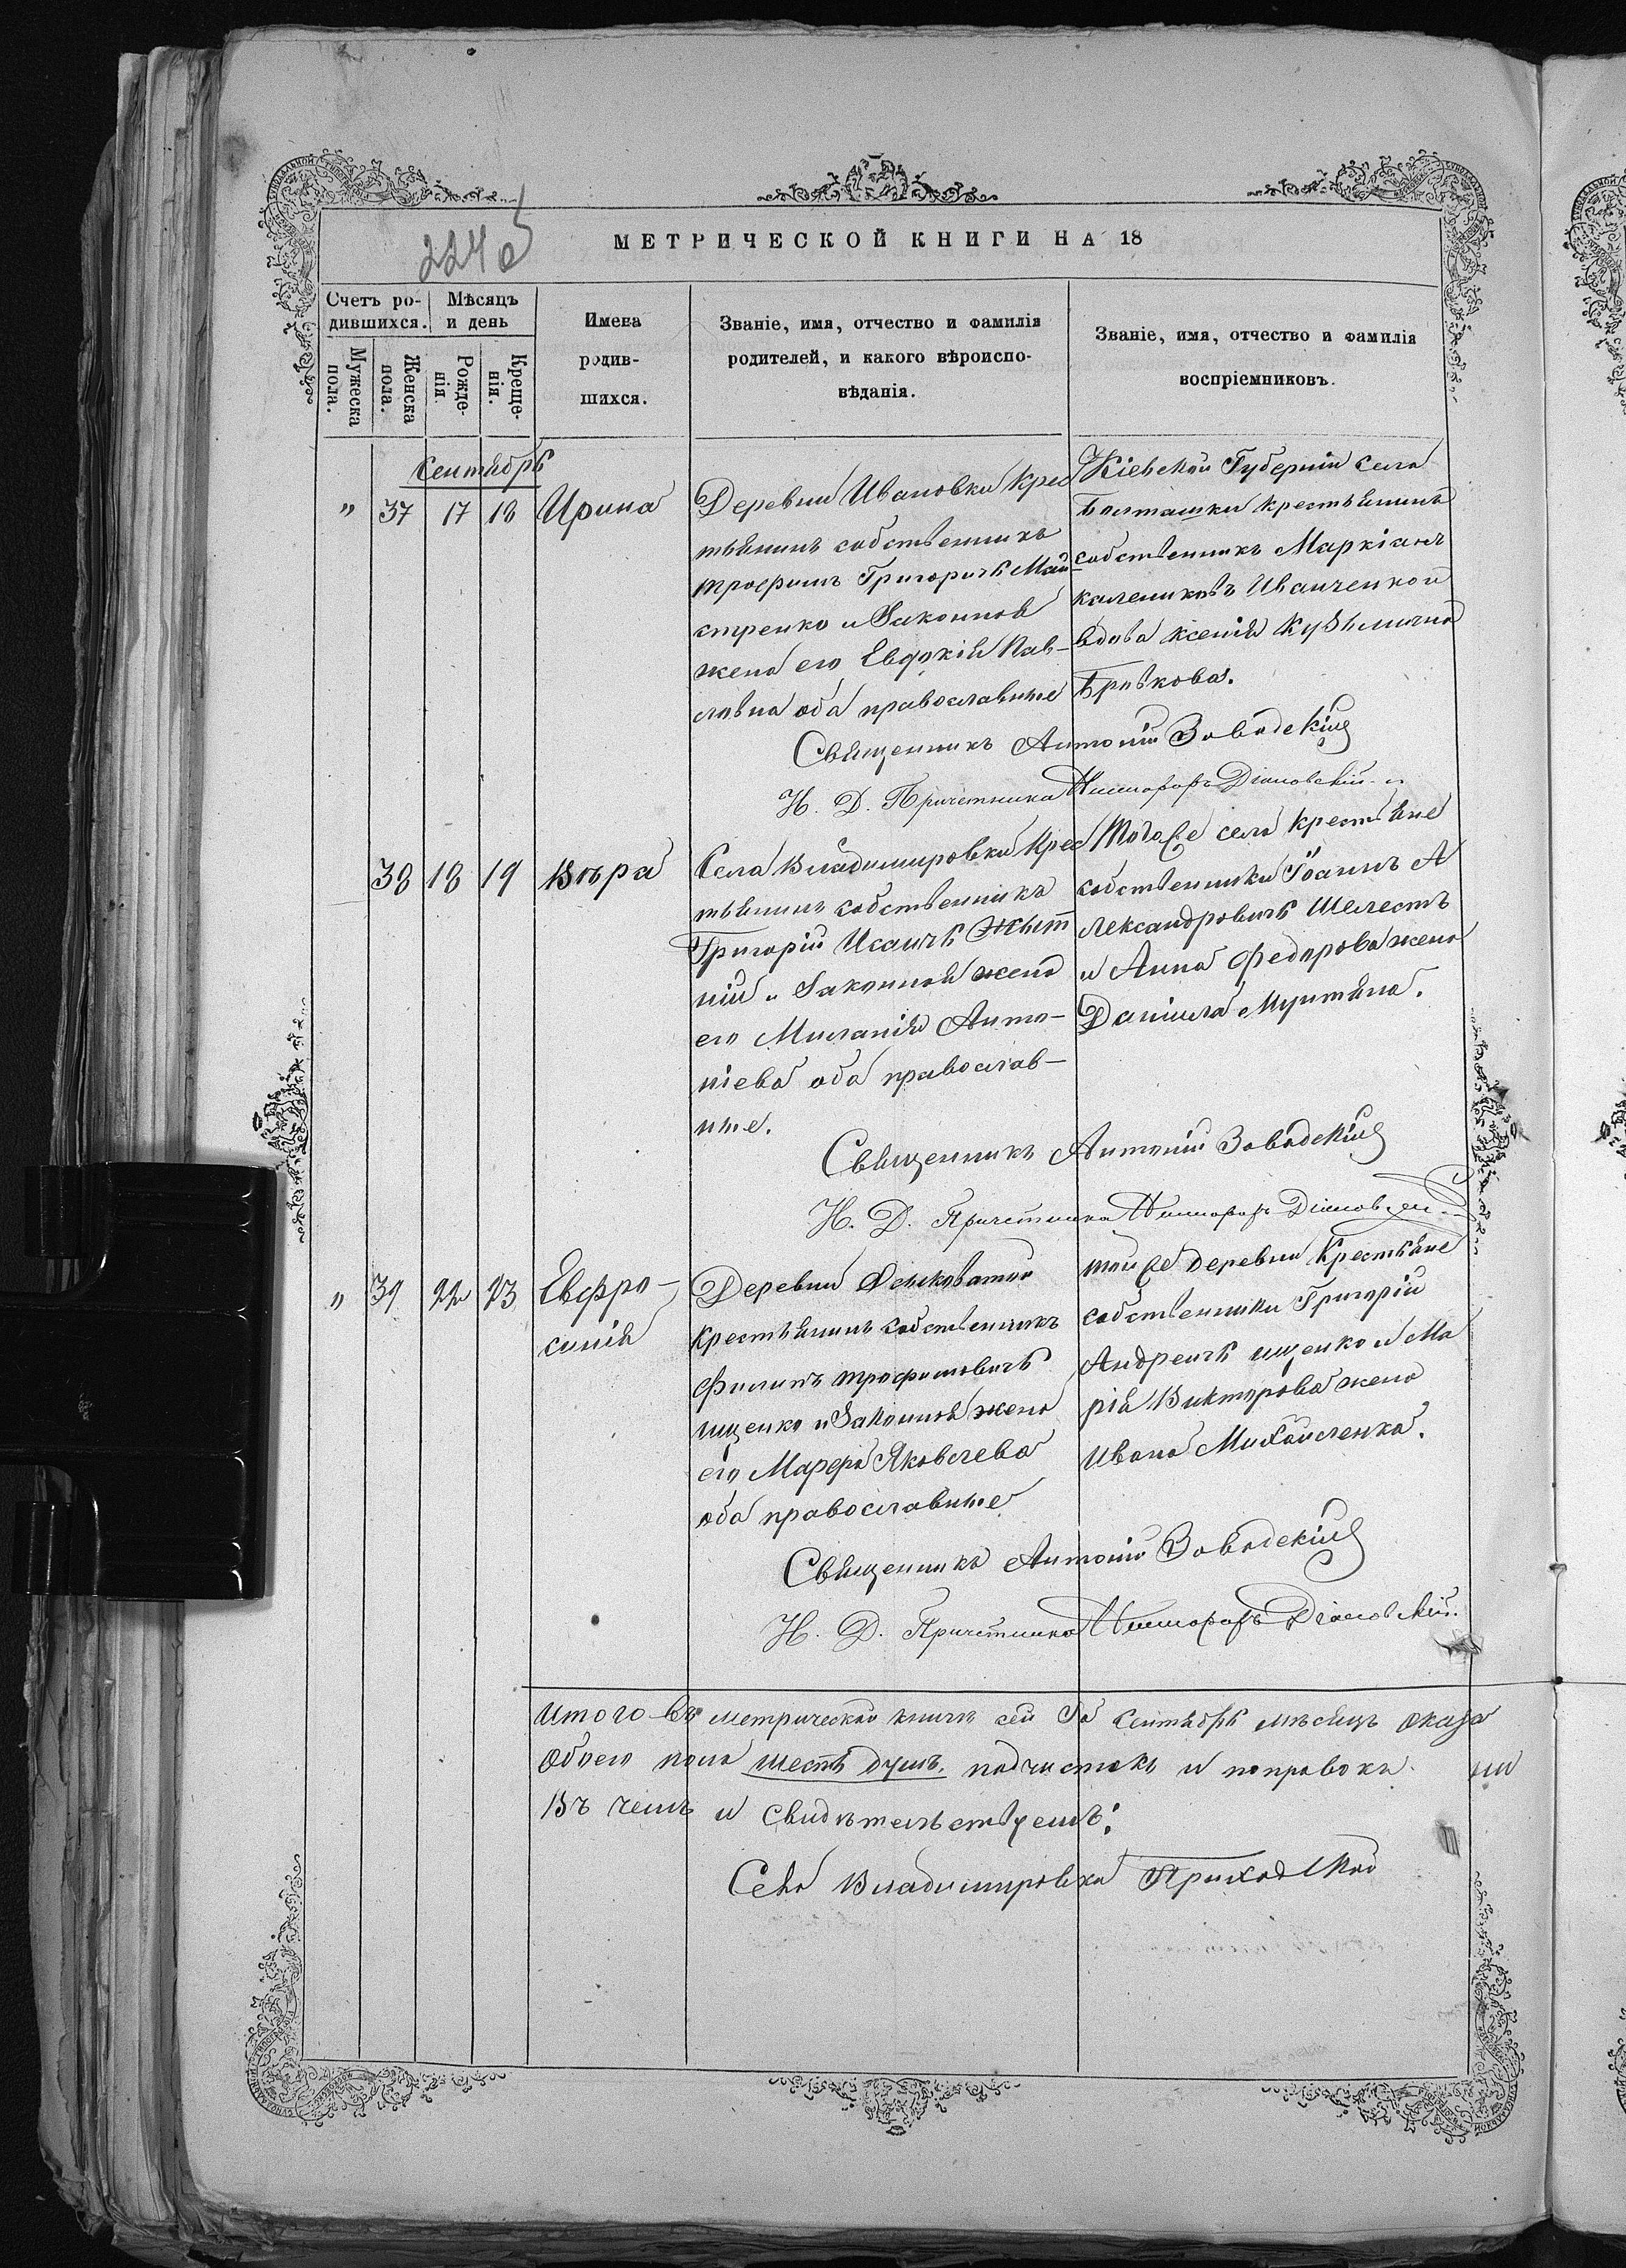 224 об
МЕТРИЧЕСКОЙ КНИГИ НА 18
Счетъ родившихся.
Мѣсяцъ и день
Имена родившихся.
Званіе, имя, отчество и фамилія родителей, и какого вѣроисповѣданія.
Званіе, имя, отчество и фамилія воспріемниковъ.
Мужеска пола.
Женска пола.
Рожденія.
Крещенія.
Сентябрь
" 37 17 18 Ирина
Деревни Ивановки Крес
тьянинъ собственникъ
Трофимъ Григоричъ Май
стренко и Законная
жена его Евдокія Пав-
ловна оба православные
Кіевской Губерніи села
Болташки крестьянинъ
собственникъ Маркіанъ
калениковъ Иванченко и
вдова Ксенія Кузьмична
Бровкова.
Священникъ Антоній Заводскій
Н. Д. Причетника Никифоръ Діановскій
38 18 19 Вѣра
Села Владимировки Крес
тьянинъ собственникъ
Григорій Исаичъ
ній и Законная жена
его Миланія Анто-
ніева оба православ-
ные.
Того же села крестьяне
собственники Іоаннъ А
лександровичъ Шелестъ
и Анна Федорова жена
Даніила Мунтяна.
Священникъ Антоній Заводскій
Н. Д. Причетника Никифоръ Діановскій
" 39 22 23 Евфро-
синія
Деревни
Крестьянинъ собственникъ
Филипъ Трофимовичъ
ищенко и Законная жена
его Марфа Яковлева
оба православные
той же деревни Крестьяне
собственники Григорій
Андреичъ ищенко и Ма
рія Викторова жена
Ивана Михайленка.
Священникъ Антоній Заводскій
Н. Д. Причетника Никифоръ Діановскій.
Итого въ метрической книгѣ сей За Сентябрь мѣсяцъ
Обоего пола шесть душъ, подчистокъ и поправокъ
Въ чемъ и свидѣтельствуемъ:
Села Владимировки Приходской